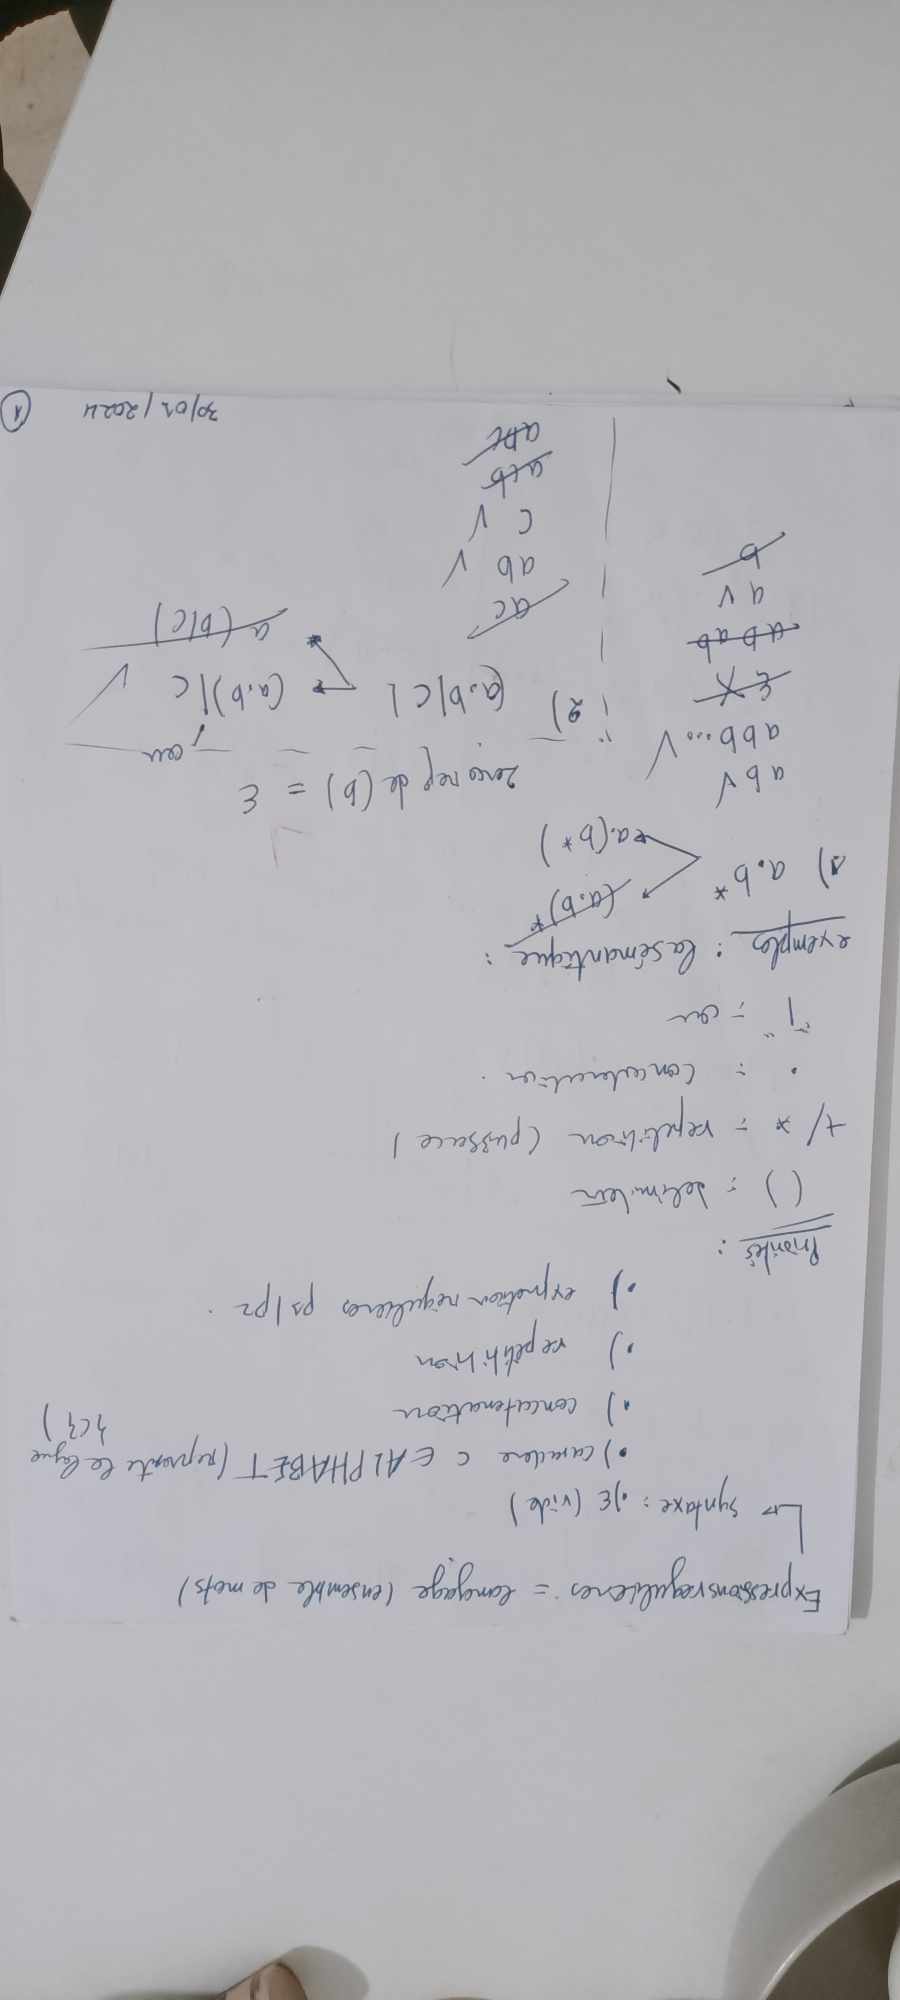 Expressions regulieres = langage (ensemble de mots)
syntaxe : .) ε (vide)
.) caractere c ∈ ALPHABET (represente le
{c})
.) concatenation
.) repétition
.) régulieres p1/p2.
Priorités :
( ) = delimiteur
+/ * = repetition (puissace)
. = concatenation.
"|" = ou
exemples : la sémantique :
1) a.b* (a.b)*
a.(b*)
ab ✓
abb... ✓
ε X
abab
a ✓
b
Zero rep de (b) = ε
ou
2) (a.b|c| (a.b)|c ✓
a (b|c)
ac
ab ✓
c ✓
acb
abc
30/01/2024 1